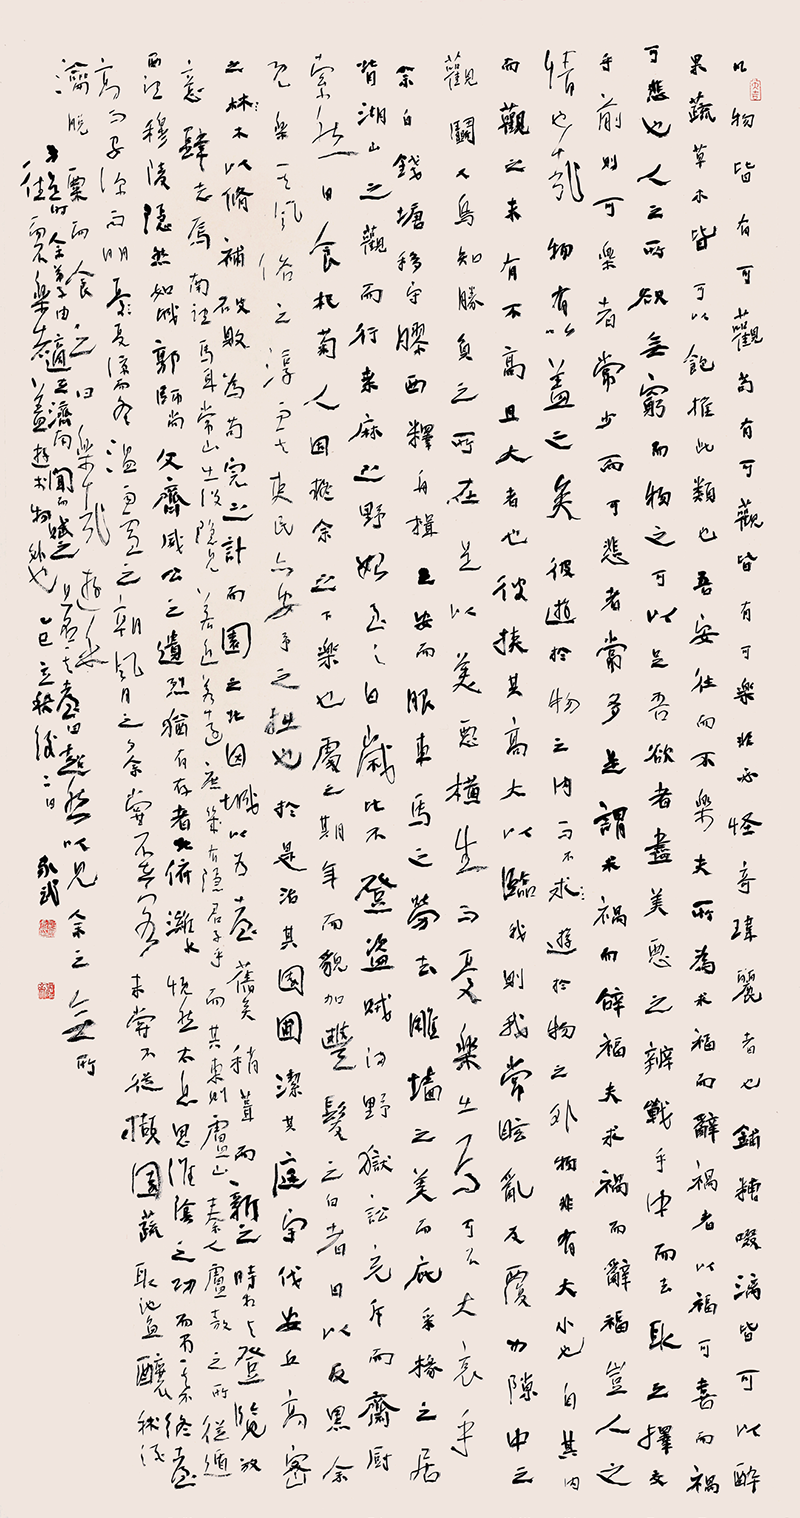 凡物皆有可觀苟有可觀皆有可樂非必怪奇瑋麗者也餔糟啜漓皆可以醉
果蔬草木皆可以飽推此類也吾安往而不樂夫所為求福而辭禍者以福可喜而禍
可悲也人之所欲無窮而物之可以足吾欲者盡美惡之辨戰乎中而去取之擇交
乎前則可樂者常少而可悲者常多是謂求禍而辭福夫求禍而辭福豈人之
情也哉物有以蓋之矣彼遊於物之內而不求遊於物之外物非有大小也自其內
而觀之未有不高且大者也彼挾其高大以臨我則我常眩亂反覆如隙中之
觀鬭又烏知勝負之所在是以美惡橫生而憂樂出焉可不大哀乎
余自錢塘移守膠西釋舟楫之安而服車馬之勞去雕墻之美而庇采椽之居
背湖山之觀而行桑麻之野始至之日歲比不登盜賊滿野獄訟充斥而齋廚
索然日食杞菊人固疑余之不樂也處之期年而貌加豐髮之白者日以反黑余
既樂其風俗之淳而其吏民亦安予之拙也於是治其園圃潔其庭宇伐安丘高密
之林木以脩補破敗為苟完之計而園之北因城以為臺舊矣稍葺而新之時相與登覽放
意肆志焉南望馬耳常山出沒隱見若近若遠庶幾有隱君子乎而其東則廬山秦人盧敖之所從遁
西望穆陵隱然如城郭師尚父齊威公之遺烈猶有存者北俯濰水慨然太息思淮陰之功而弔其不終臺
高而安深而明夏涼而冬溫雨雪之朝風月之夕余嘗不在客未嘗不從擷園蔬取池魚釀秫酒
瀹脫粟而食之曰樂哉遊乎
方是時余弟子由適在濟南聞而賦之且名其臺曰超然以見余之無所
往而不樂者蓋遊於物外也乙巳立秋後二日